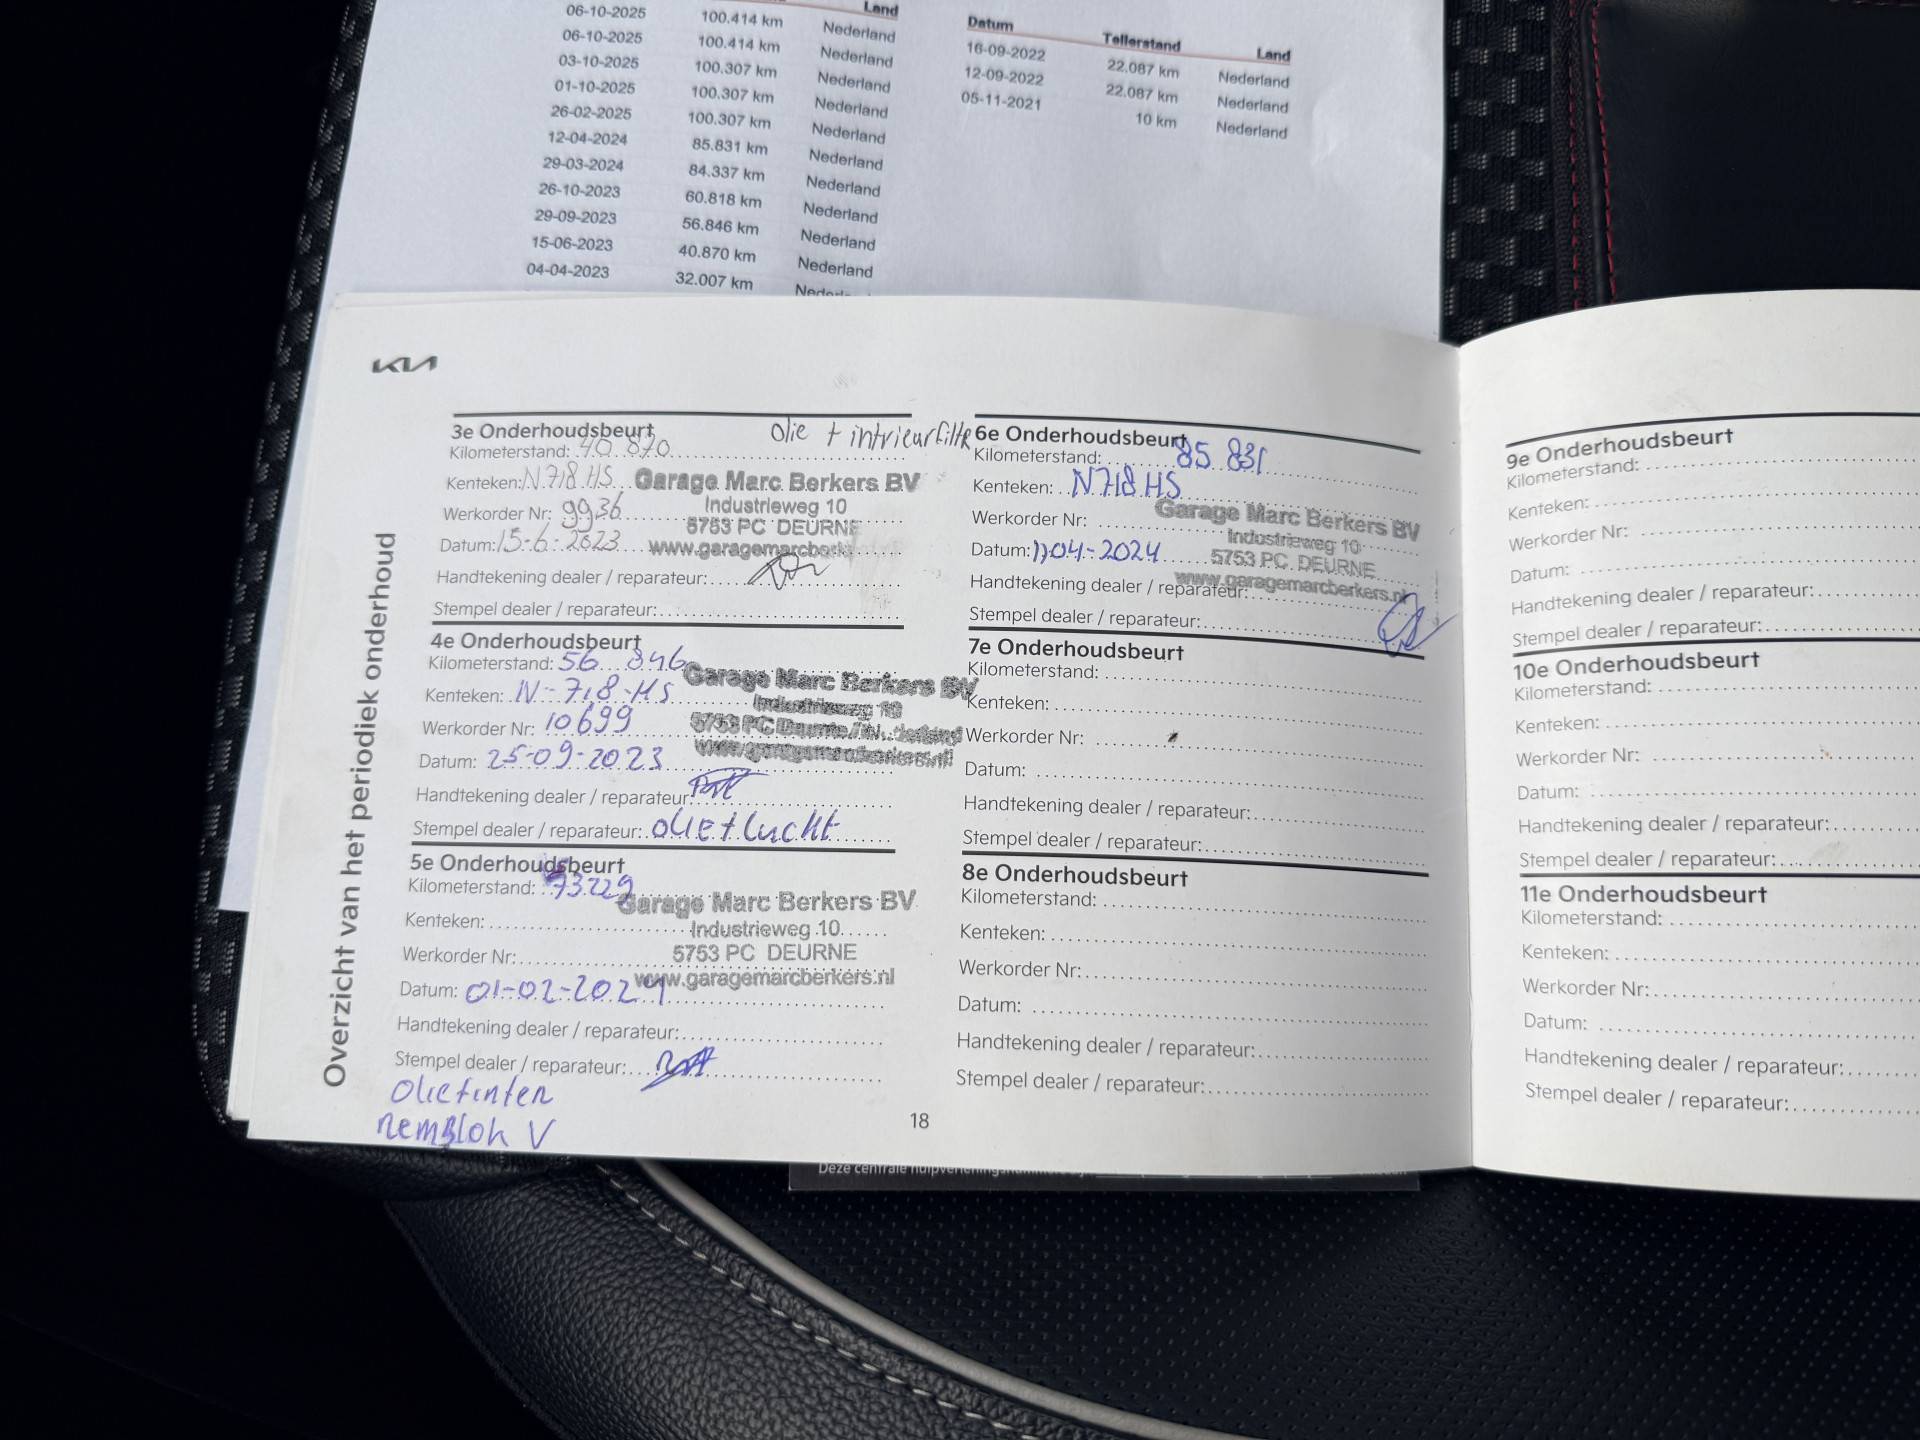 Land
06-10-2025 100.414 km Nederland
06-10-2025 100.414 km Nederland
03-10-2025 100.307 km Nederland
01-10-2025 100.307 km Nederland
26-02-2025 100.307 km Nederland
12-04-2024 85.831 km Nederland
29-03-2024 84.337 km Nederland
26-10-2023 60.818 km Nederland
29-09-2023 56.846 km Nederland
15-06-2023 40.870 km Nederland
04-04-2023 32.007 km
Datum Tellerstand Land
16-09-2022 22.087 km Nederland
12-09-2022 22.087 km Nederland
05-11-2021 10 km Nederland
KIA
Overzicht van het periodiek onderhoud
3e Onderhoudsbeurt olie + intrieurfiltr
Kilometerstand: 40 870
Kenteken: N718HS
Werkorder Nr: 9936
Datum: 15-6-2023
Handtekening dealer / reparateur:
Stempel dealer / reparateur:
Garage Marc Berkers BV
Industrieweg 10
5753 PC DEURNE
www.garagemarcberk
4e Onderhoudsbeurt
Kilometerstand: 56 846
Kenteken: N-718-HS
Werkorder Nr: 10699
Datum: 25-09-2023
Handtekening dealer / reparateur:
Stempel dealer / reparateur: olie + lucht
Garage Marc Berkers BV
Industrieweg 10
5753 PC Deurne / Nederland
www.garagemarcberkers.nl
5e Onderhoudsbeurt
Kilometerstand: 73229
Kenteken:
Werkorder Nr:
Datum: 01-02-2024
Handtekening dealer / reparateur:
Stempel dealer / reparateur:
Garage Marc Berkers BV
Industrieweg 10
5753 PC DEURNE
www.garagemarcberkers.nl
Remblok V
6e Onderhoudsbeurt
Kilometerstand: 85 831
Kenteken: N718HS
Werkorder Nr:
Datum: 11-04-2024
Handtekening dealer / reparateur:
Stempel dealer / reparateur:
Garage Marc Berkers BV
Industrieweg 10
5753 PC DEURNE
www.garagemarcberkers.nl
7e Onderhoudsbeurt
Kilometerstand:
Kenteken:
Werkorder Nr:
Datum:
Handtekening dealer / reparateur:
Stempel dealer / reparateur:
8e Onderhoudsbeurt
Kilometerstand:
Kenteken:
Werkorder Nr:
Datum:
Handtekening dealer / reparateur:
Stempel dealer / reparateur:
18
9e Onderhoudsbeurt
Kilometerstand:
Kenteken:
Werkorder Nr:
Datum:
Handtekening dealer / reparateur:
Stempel dealer / reparateur:
10e Onderhoudsbeurt
Kilometerstand:
Kenteken:
Werkorder Nr:
Datum:
Handtekening dealer / reparateur:
Stempel dealer / reparateur:
11e Onderhoudsbeurt
Kilometerstand:
Kenteken:
Werkorder Nr:
Datum:
Handtekening dealer / reparateur:
Stempel dealer / reparateur:
Deze centrale